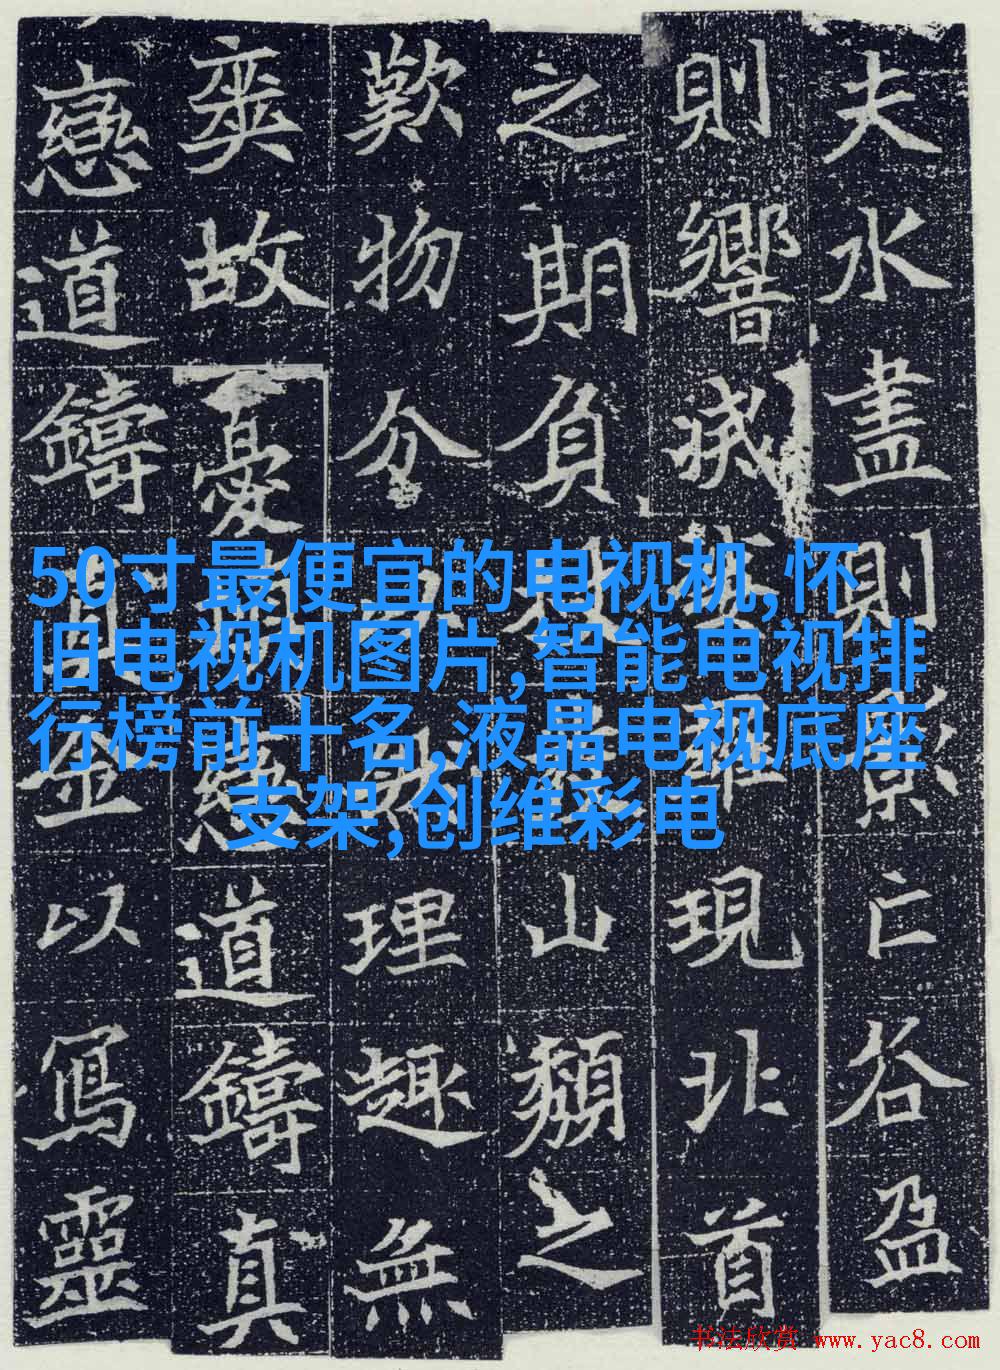 50寸最便宜的电视机,怀
旧电视机图片,智能电视排
行榜前十名,液晶电视底座
支架,创维彩电
夫水盡則影亡谷盈
則響現北首
之期負山頽之
歎物分理趣無
爽故憂道鑄真
戀道鑄金以寫靈
书法欣赏 www.yac8.com